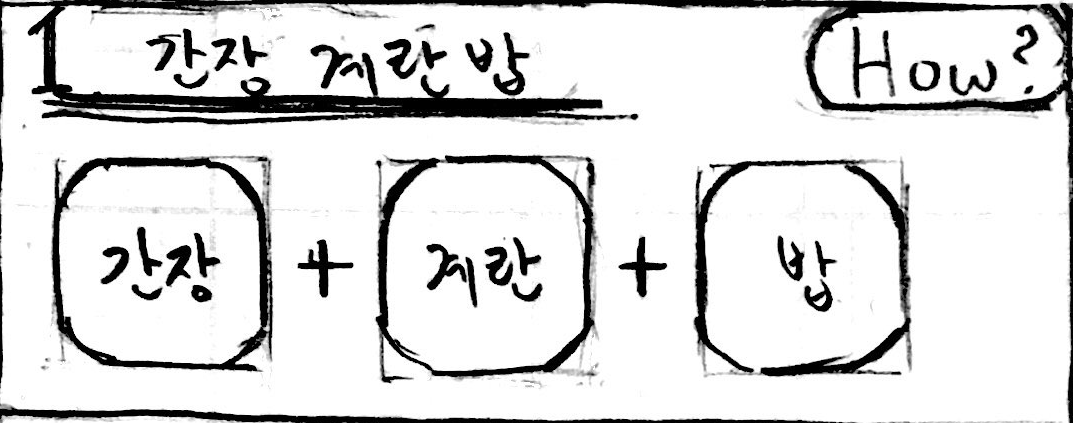 1 간장 계란 밥 How?
간장 + 계란 + 밥